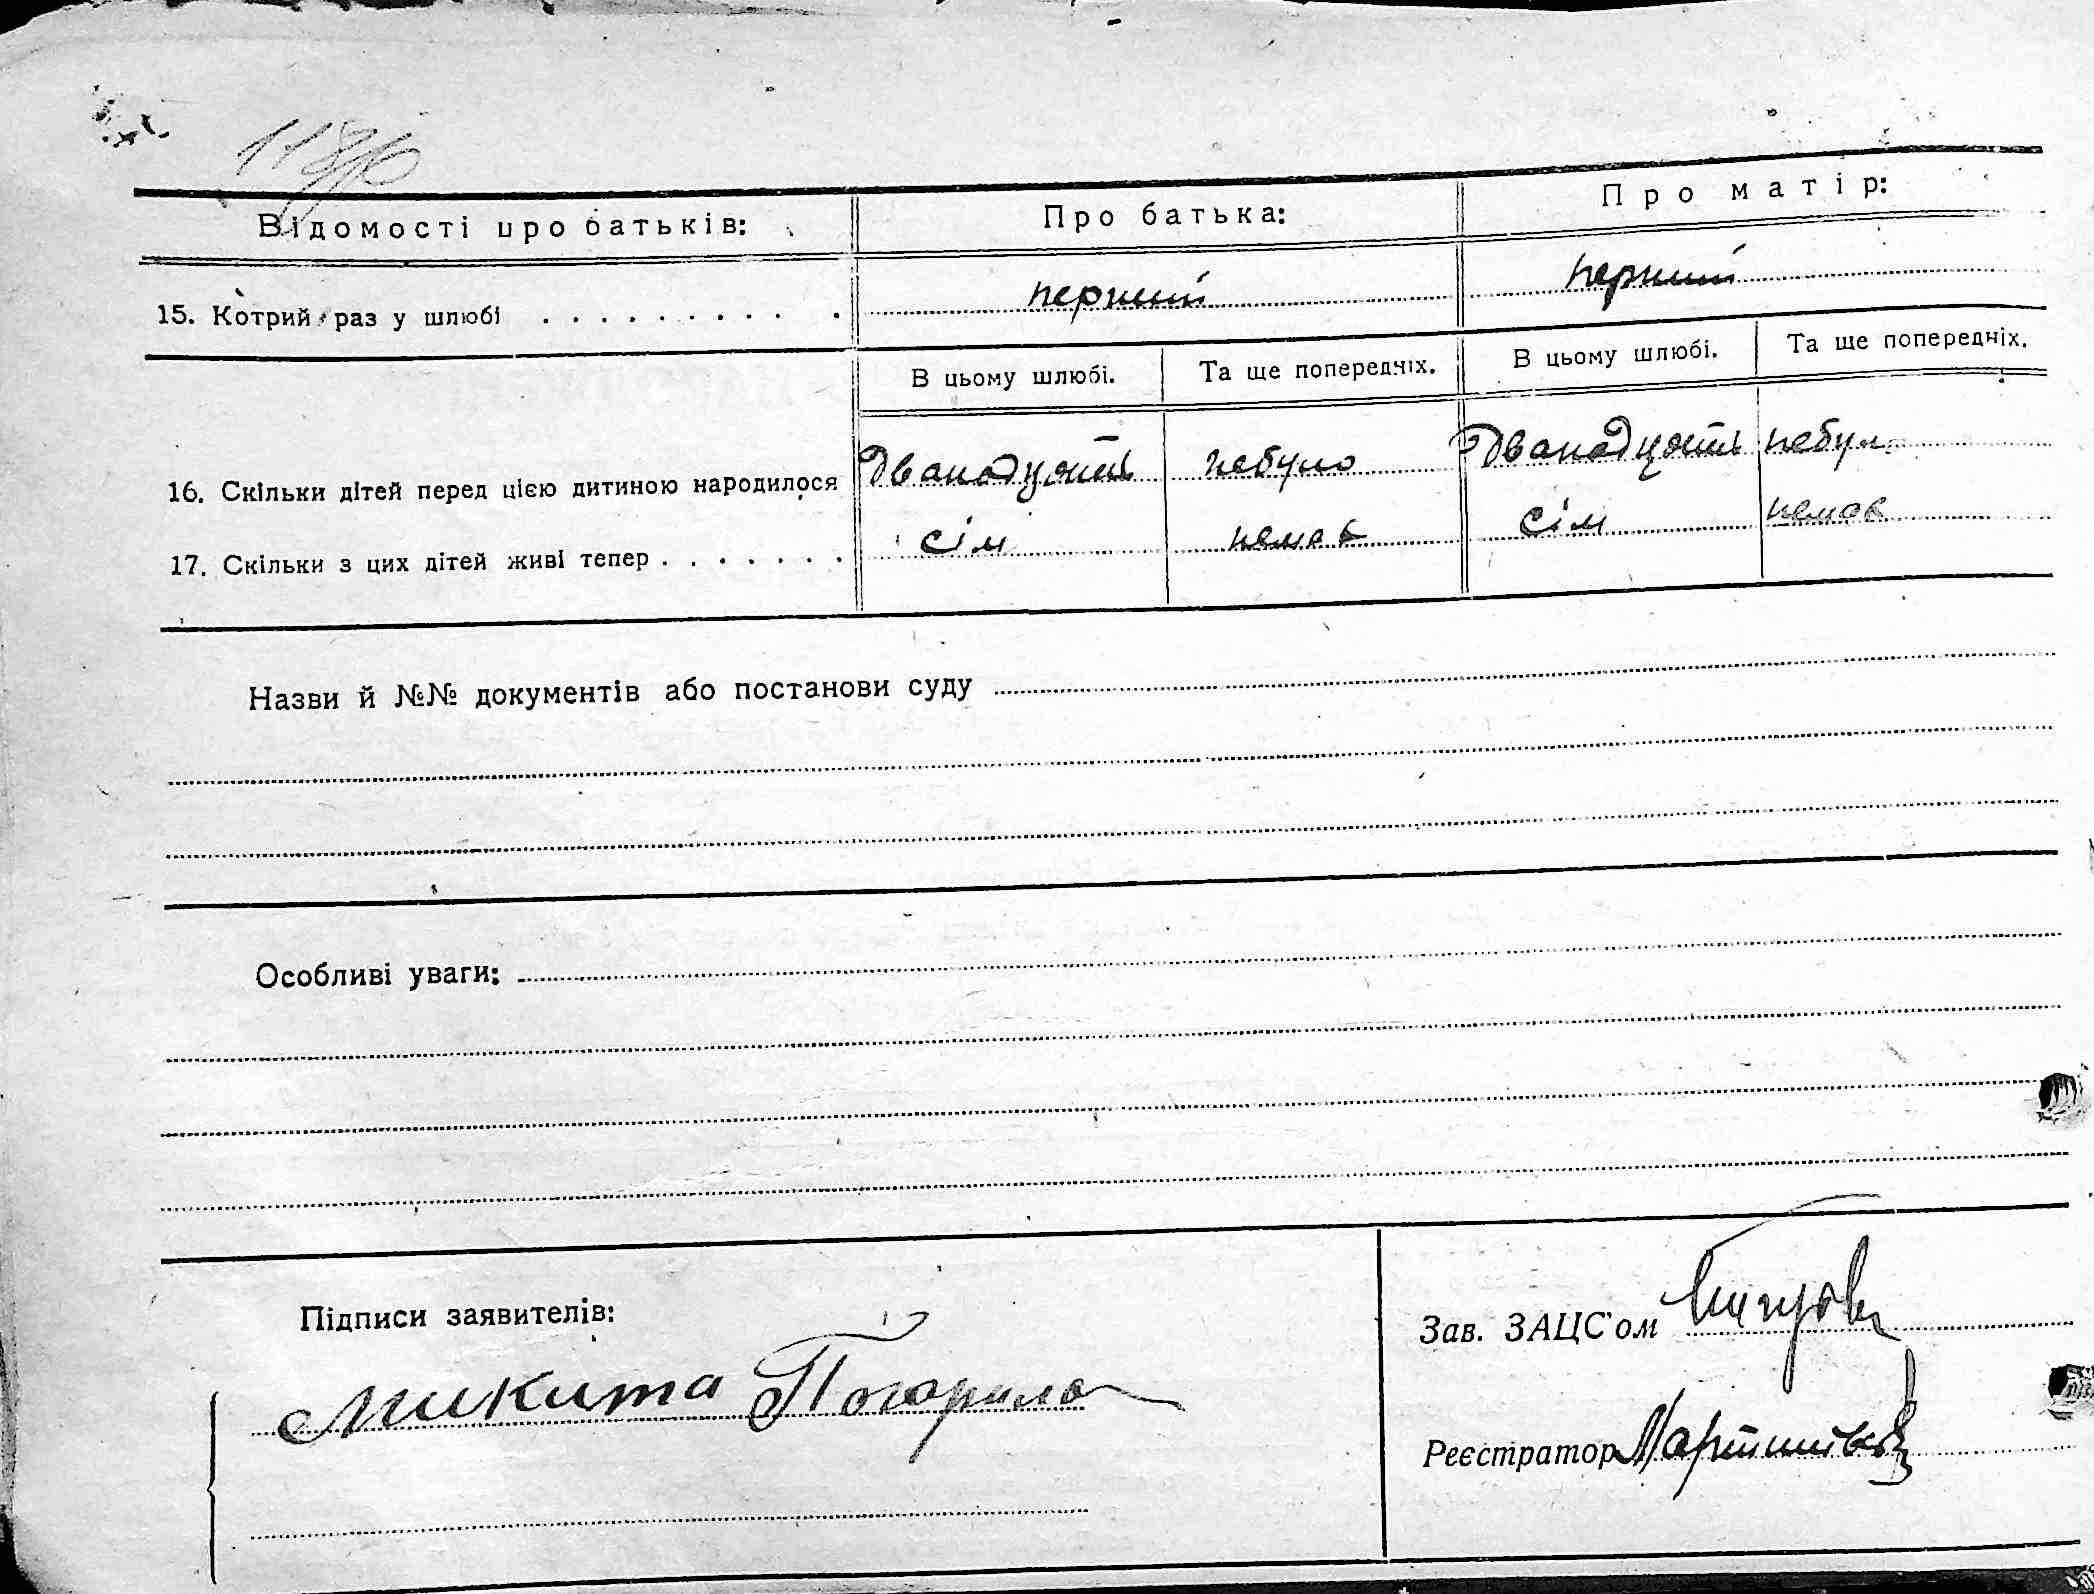 Відомості про батьків: Про батька: Про матір:
15. Котрий раз у шлюбі . . . . . . . . . . перший перший
В цьому шлюбі. Та ще попередніх. В цьому шлюбі. Та ще попередніх.
16. Скільки дітей перед цією дитиною народилося Дванадцять небуло Дванадцять небул
17. Скільки з цих дітей живі тепер . . . . . . . сім немає сім немає
Назви й №№ документів або постанови суду
Особливі уваги:
Підписи заявителів:
Зав. ЗАЦС'ом
Микита Погоріло
Реєстратор